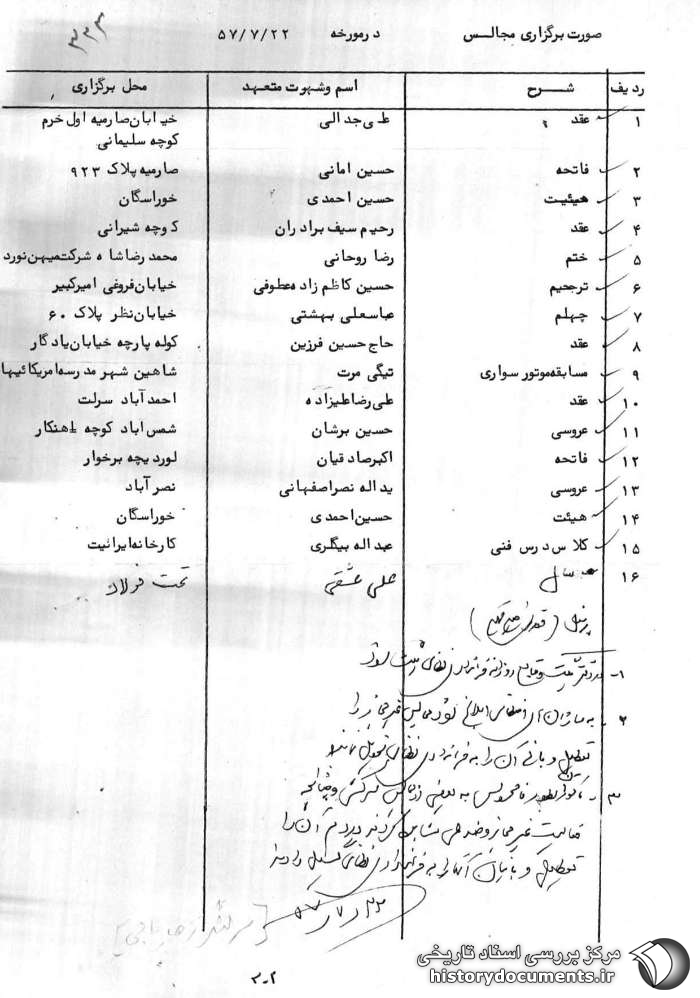 صورت برگزاری مجالس در مورخه ۵۷/۷/۲۲
ردیف شرح اسم وشهوت متعهد محل برگزاری
۱ عقد علی جدالی خیابان صارمیه اول خرم
کوچه سلیمانی
۲ فاتحه حسین امانی صارمیه پلاک ۹۲۳
۳ هیئیت حسین احمدی خوراسگان
۴ عقد رحیم سیف برادران کوچه شیرانی
۵ ختم رضا روحانی محمد رضا شاه شرکت میهن نورد
۶ ترجیم حسین کاظم زاده عطوفی خیابان فروغی امیرکبیر
۷ چهلم عباسعلی بهشتی خیابان نظر پلاک ۶۰
۸ عقد حاج حسین فرزین کوله پارچه خیابان یادگار
۹ مسابقه موتور سواری تیگی مرت شاهین شهر مدرسه امریکائیها
۱۰ عقد علی رضا علیزاده احمد آباد سرلت
۱۱ عروسی حسین برشان شمس اباد کوچه اهنکار
۱۲ فاتحه اکبر صادقیان لوردیچه برخوار
۱۳ عروسی یداله نصراصفهانی نصرآباد
۱۴ هیئت حسین احمدی خوراسگان
۱۵ کلاس درس فنی عبداله بیگلری کارخانه ایرانیت
۱۶ سال علی عشقی تخت فولاد
۱-
۲ - به ابلاغ شود مجالس غیر مجاز را
تعطیل و بانی آن را به فرمانداری نظامی تحویل نمایند
۳ - بطور نامحسوس به بعضی از مجالس سرکشی و چنانچه
فعالیت غیر مجاز و ضد ملی آن را
تعطیل و بانیان آنرا به فرمانداری نظامی گسیل دارند
مرکز بررسی اسناد تاریخی
historydocuments.ir